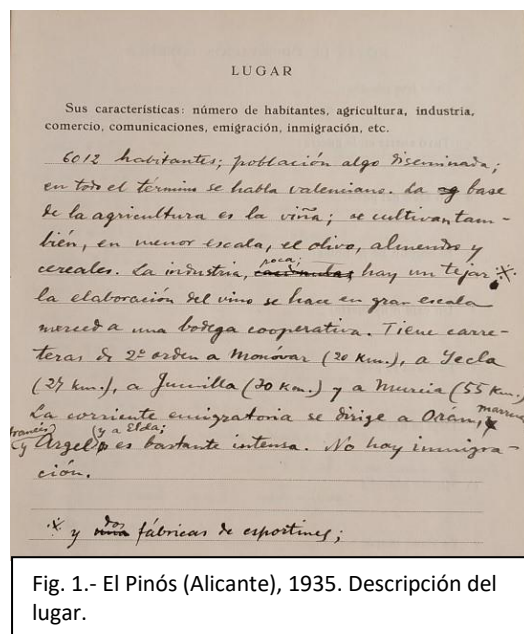 LUGAR
Sus características: número de habitantes, agricultura, industria,
comercio, comunicaciones, emigración, inmigración, etc.
6012 habitantes; población algo diseminada;
en todo el término se habla valenciano. La base
de la agricultura es la viña; se cultivan tam-
bién, en menor escala, el olivo, almendro y
cereales. La industria, poca; hay un tejar ※
la elaboración del vino se hace en gran escala
merced a una bodega cooperativa. Tiene carre-
teras de 2º orden a Monóvar (20 Km.), a Yecla
(27 km.), a Jumilla (30 Km.) y a Murcia (55 Km.)
La corriente emigratoria se dirige a Orán,
(y Argel) (y a Elda; es bastante intensa. No hay inmigra-
ción.
※ y dos fábricas de esportines;
Fig. 1.- El Pinós (Alicante), 1935. Descripción del
lugar.